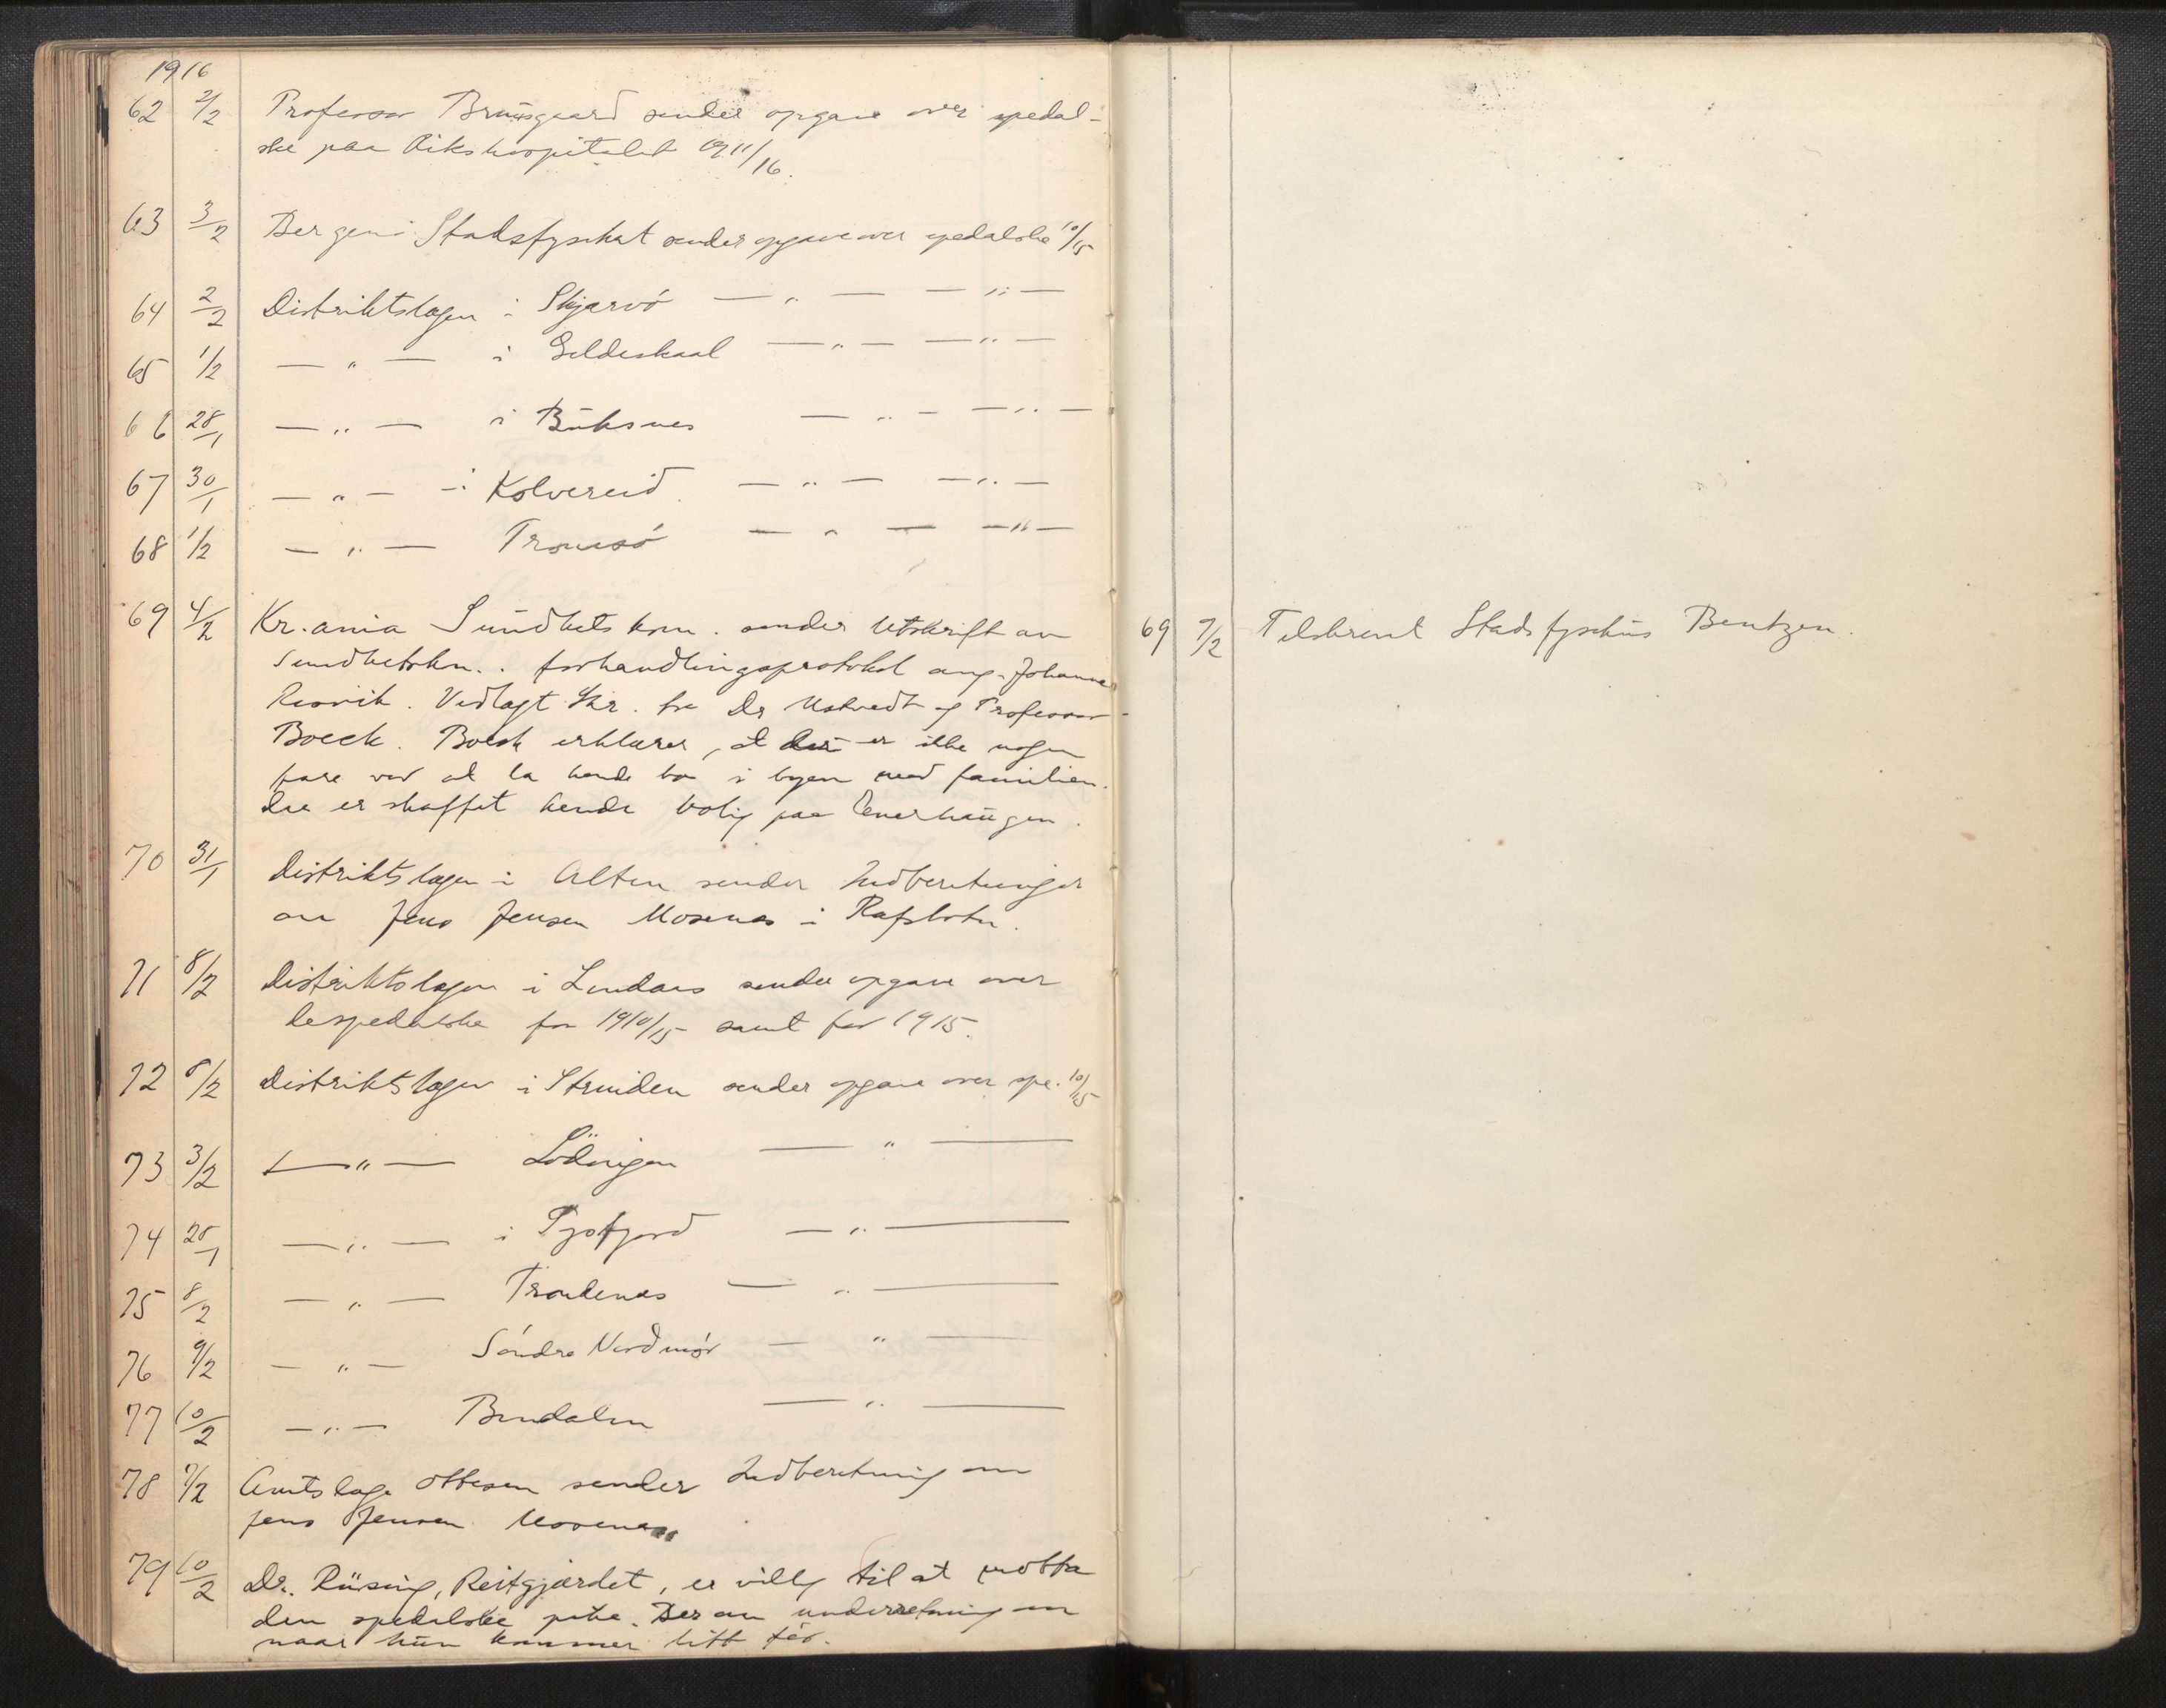 1916
62 2/2 Professor Bruusgaard sender opgave over spedal-
ske paa Rikshospitalet 1911/16.
63 3/2 Bergens Stadsfysikat sender opgave over spedalske 10/15
64 2/2 Distriktslægen i Skjærvö — " — — " —
65 1/2 — " — i Gildeskaal — " — — " —
66 28/1 — " — i Buksnes — " — — " —
67 30/1 — " — i Kolvereid. — " — — " —
68 1/2 — " — Tromsö — " — — " —
69 4/2 Kr.ania Sundhets kom. sender Utskrift av
Sundhetskn.. forhandlingsprotokol ang. Johanne
Resvik. Vedlagt Skr. fra Dr Ustvedt og Professor
Boeck. Boeck erklærer, at der er ikke nogen
fare ved at la hende bo i byen med familien.
Der er skaffet hende bolig paa Enerhaugen.
70 31/1 Distriktslægen i Alten sender Indberetninger
om Jens Jensen Mosenes i Rafsbotn.
71 8/2 Distriktslægen i Lindaas sender opgave over
de spedalske for 1910/15 samt for 1915.
72 8/2 Distriktslægen i Strinden sender opgave over spe. 10/15
73 3/2 — " — Lödingen — " —
74 28/1 — " — i Tysfjord — " —
75 8/2 — " — Trondenes — " —
76 9/2 — " — Söndre Nordmör — " —
77 10/2 — " — Bindalen — " —
78 7/2 Amtslæge Ottesen sender Indberetning om
Jens Jensen Mosenes
79 10/2 Dr. Rüsing, Reitgjærdet, er villig til at motta
den spedalske pike. Ber om underretning om
naar hun kommer litt för.
69 7/2 Tilskrevet Stadsfysikus Bentzen.